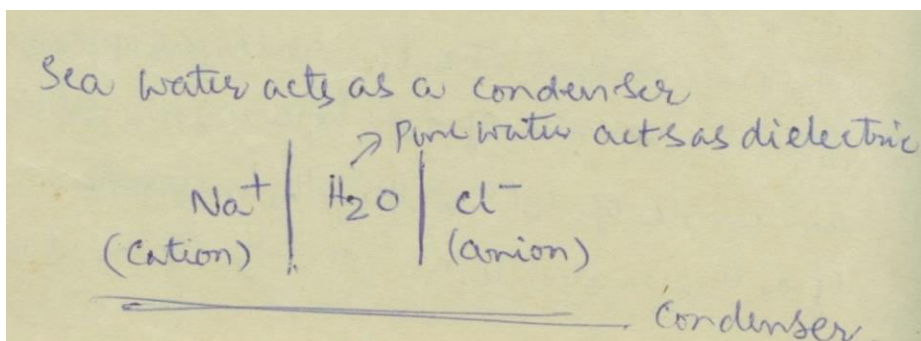 Sea water acts as a condenser
Pure water acts as dielectric
Na+ | H2O | Cl-
(Cation) (anion)
Condenser.